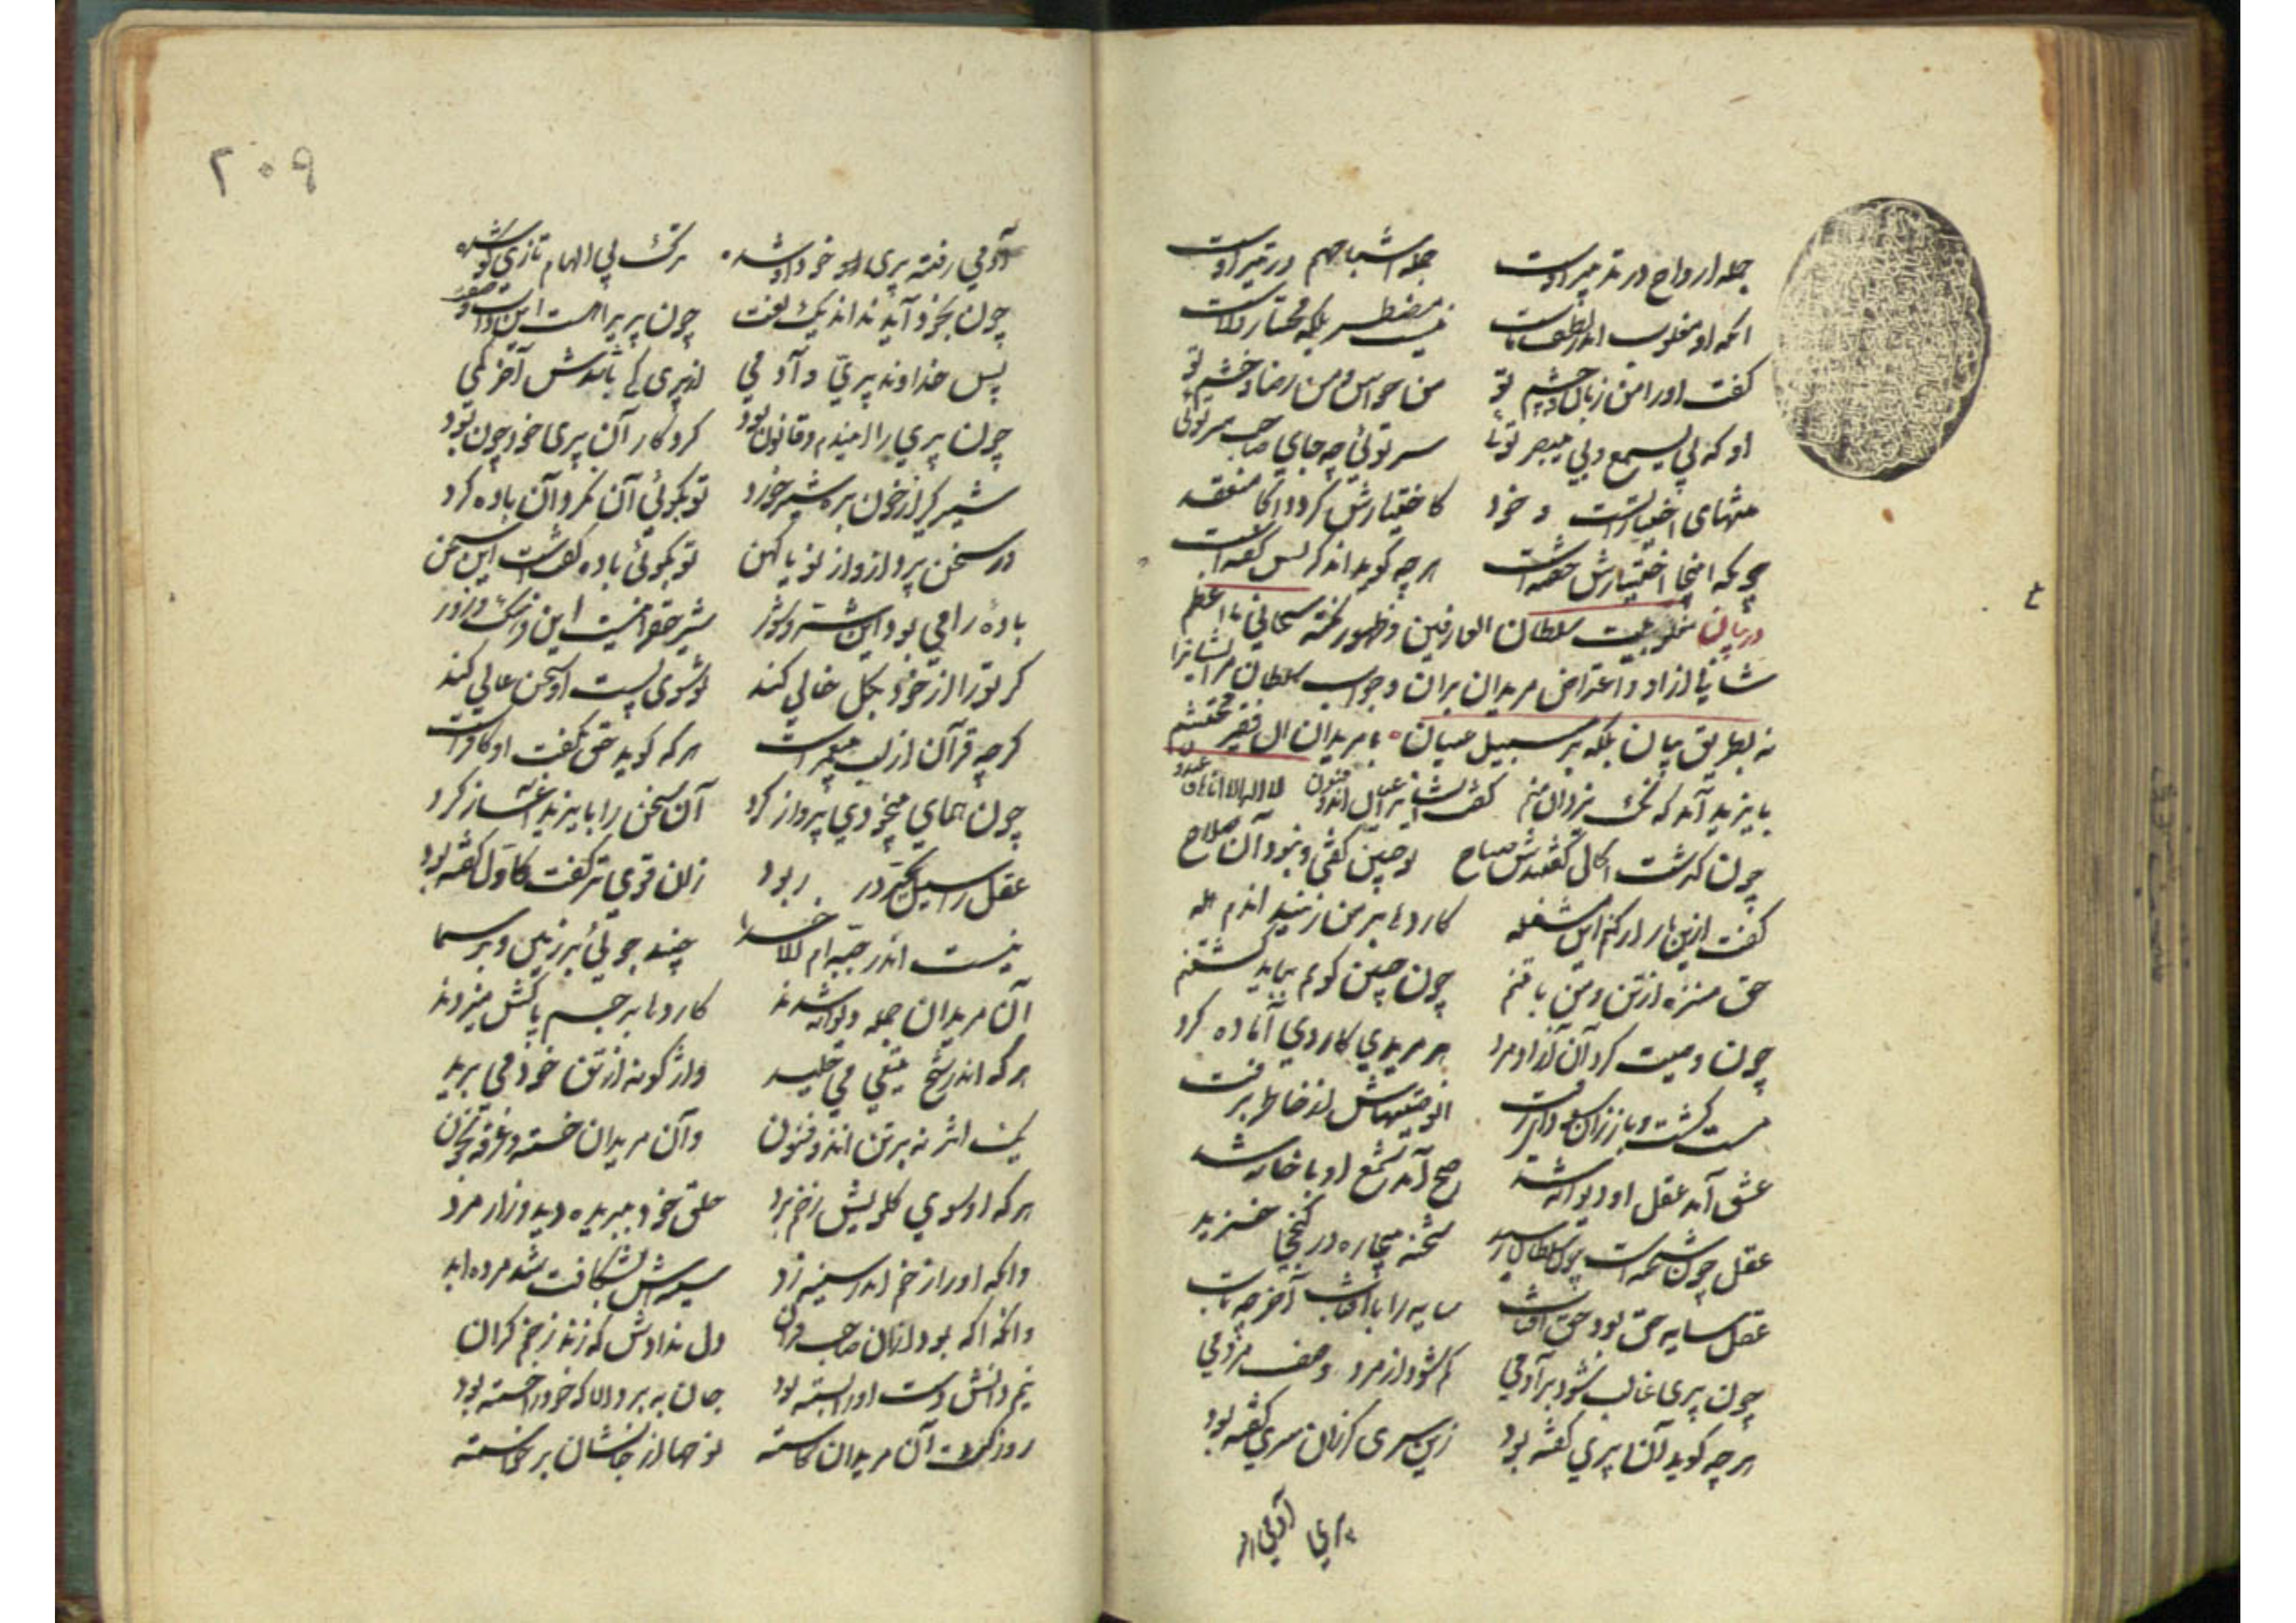 جمله ارواح در تدبیر اوست جمله اشباح هم در تیر اوست
آنکه او مغلوب اندر لطف ماست نیست مضطر بلکه مختار ولاست
گفت او را من زبان و چشم تو من حواس و من رضا و خشم تو
رو که بی یسمع و بی یبصر توئی سر توئی چه جای صاحب سر توئی
منتهای اختیار آنست خود کاختیارش گردد آنجا مفتقد
چونکه اینجا اختیارش خفته است هر چه گوید
در بیان مغلوبیت سلطان العارفین و ظهور نکته سبحانی ما اعظم
شانی از او و اعتراض مریدان بر آن و جواب سلطان مر ایشانرا
نه بطریق بیان بلکه بر سبیل عیان با مریدان آن فقیر محتشم
بایزید آمد که نک یزدان منم گفت مستانه عیان آن ذو فنون لا اله الا انا ها فاعبدون
چون گذشت آن حال گفتندش صباح تو چنین گفتی و نبود آن صلاح
گفت این بار ار کنم این مشغله کاردها بر من زنید آندم هله
حق منزه از تن و من با تنم چون چنین گویم بباید کشتنم
چون وصیت کرد آن آزاد مرد هر مریدی کاردی آماده کرد
مست گشت او باز از آن سغراق زفت آن وصیتهاش از خاطر برفت
عشق آمد عقل او دیوانه شد صبح آمد شمع او بیچاره شد
عقل چون شحنه است چون سلطان رسید شحنه بیچاره در کنجی خزید
عقل سایه حق بود حق آفتاب سایه را با آفتاب آخر چه تاب
چون پری غالب شود بر آدمی گم شود از مرد وصف مردمی
هر چه گوید آن پری گفته بود زین سری گر زان سری گفته بود
پری آدمی را
۲۰۹
آدمی رفته پری او خود شده ترک بی الهام تازی گو شده
چون بخود آید نداند یک لغت چون پری را هست این ذات و صفت
پس خداوند پری و آدمی از پری کی باشدش آخر کمی
چون پری را این دم و قانون بود کردگار آن پری خود چون بود
شیر گیر از خون بره شیر خورد تو بگوئی آن نکرد آن باده کرد
ور سخن پردازد از نو یا کهن تو بگوئی باده گفتست این سخن
باده را می بود این شر و شور نور حق را نیست این فرهنگ و زور
گر ترا از خود بکل خالی کند تو شوی پست او سخن عالی کند
گر چه قرآن از لب پیغمبرست هر که گوید حق نگفت او کافرست
چون همای بیخودی پرواز کرد آن سخن را بایزید آغاز کرد
عقل را سیل تحیر در ربود زان قوی تر گفت کاول گفته بود
نیست اندر جبه ام الا خدا چند جوئی بر زمین و بر سما
آن مریدان جمله دیوانه شدند کاردها بر جسم پاکش میزدند
هر که اندر شیخ تیغی می خلید واژگونه از تن خود می برید
یک اثر نه بر تن آن ذو فنون وآن مریدان خسته و غرقه بخون
هر که او سوی گلویش زخم برد حلق خود ببریده دید و زار مرد
وآنکه او را زخم اندر سینه زد سینه اش بشکافت شد مرده ابد
وآنکه آگه بود از آن صاحب قران دل ندادش که زند زخم گران
نیم دانش دست او را بسته بود جان ببرد الا که خود را خسته بود
روز گشت و آن مریدان کاسته نوحها از جانشان برخاسته